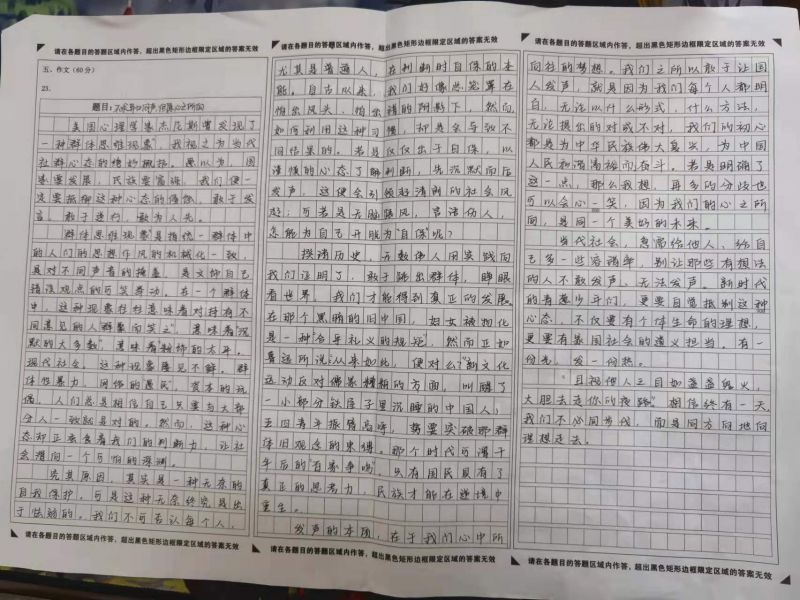 请在各题目的答题区域内作答，超出黑色矩形边框限定区域的答案无效
五、作文(60分)
23.
题目：不求异口同声，但愿心之所向
美国心理学家杰尼斯曾发现了
一种"群体思维现象"，我视之为当代
社群心态的绝妙概括。愚以为，国
家要发展，民族要富强，我们便一
定要抵抑这种心态的侵蚀，敢于发
言，敢于逆行，敢为人先。
群体思维现象是指统一群体中
的人们的思想作风的机械化一致，
是对不同声音的掩盖，是文饰自己
错误观点的可笑举动。在一个群体
中，这种现象往往意味着对持有不
同意见的人"群聚而笑之"，意味着"沉
默的大多数"，意味着"粉饰的太平"。
现代社会，这种现象屡见不鲜。群
体性暴力，网络的"愚民"，资本的玩
偶，人们总是相信自己只要与大部
分人一致就是对的。然而，这种心
态却正蚕食着我们的判断力，让社
会滑向一个可怕的深渊。
究其原因，其实是一种无奈的
自我保护，可是这种无奈终究是出
于怯懦的。我们不可否认每个人，
请在各题目的答题区域内作答，超出黑色矩形边框限定区域的答案无效
请在各题目的答题区域内作答，超出黑色矩形边框限定区域的答案无效
尤其是普通人，在判断时自保的本
能。自古以来，我们好像总笼罩在
怕出风头、怕出错的阴影下，然而，
如何利用这种习惯，却是会导致不
同结果的。若是仅仅出于自保，以
谨慎的心态了解判断，先沉默而后
发声，这便会引领好清朗的社会风
起；可若是无脑跟风，言语伤人，
怎能为自己开脱为"自保"呢？
揆诸历史，无数伟人用实践向
我们证明了，敢于跳出群体，睁眼
看世界，我们才能得到真正的发展。
在那个黑暗的旧中国，妇女被物化
是一种"合乎礼义的规范"，然而正如
鲁迅所说"从来如此，便对么？"新文化
运动反对儒家糟粕的方面，叫醒了
一小部分铁屋子里沉睡的中国人；
五四青年振臂高呼，势要突破那群
体旧观念的束缚。那个时代可谓千
年后的"百家争鸣"，只有国民具有了
真正的思考力，民族才能在逆境中
重生。
发声的本质，在于我们心中所
请在各题目的答题区域内作答，超出黑色矩形边框限定区域的答案无效
请在各题目的答题区域内作答，超出黑色矩形边框限定区域的答案无效
向往的梦想。我们之所以敢于让国
人发声，就是因为我们每个人都明
白，无论以什么形式，什么方法，
无论提出的对或不对，我们的初心
都是为中华民族伟大复兴，为中国
人民和谐富裕而奋斗。若是明确了
这一点，那么我想，再多的分歧也
可以会心一笑，因为我们的心之所
向，是同一个美好的未来。
当代社会，急需给他人、给自
己多一些容错率，别让那些有想法
的人不敢发声、无法发声。新时代
的青葱少年们，更要自觉抵制这种
心态，不仅要有个体生命的理想，
更要有家国社会的道义担当。有一
份光，发一份热。
且视他人之目如盏盏鬼火，
大胆去走你的夜路。相信终有一天，
我们不必同步伐，而是同方向地向
理想走去。
请在各题目的答题区域内作答，超出黑色矩形边框限定区域的答案无效